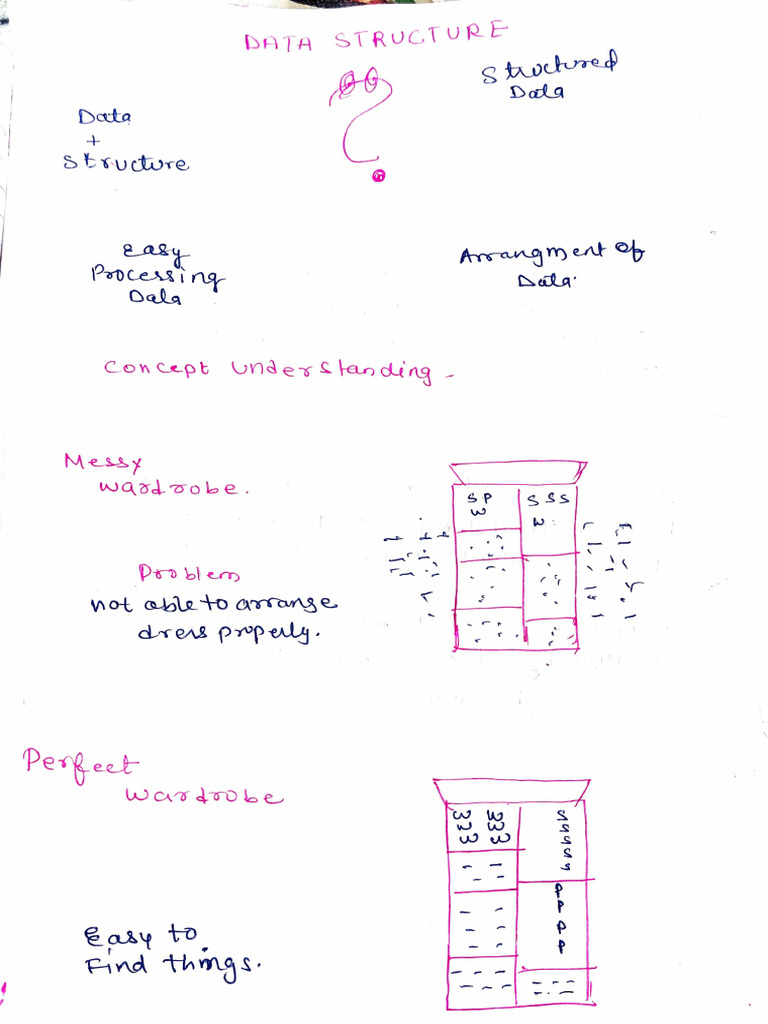 DATA STRUCTURE
Structured
Data
Data
+
Structure
Easy
Processing
Data
Arrangment of
Data.
Concept understanding -
Messy
wardrobe.
S P
W
S S S
W
Problem
not able to arrange
dress properly.
Perfect
wardrobe
S
S
S
S
S
P
P
P
P
Easy to
Find things.